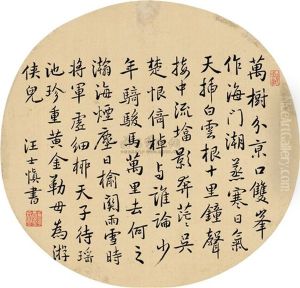 萬樹分京口雙峯
作海門潮蒸寒日氣
天插白雲根十里鐘聲
接中流塔影奔茫々吳
楚恨倚棹與誰論少
年騎駿馬萬里去何之
瀚海煙塵日榆關雨雪時
將軍虛細柳天子待瑶
池珍重黃金勒毋為游
俠兒 汪士慎書